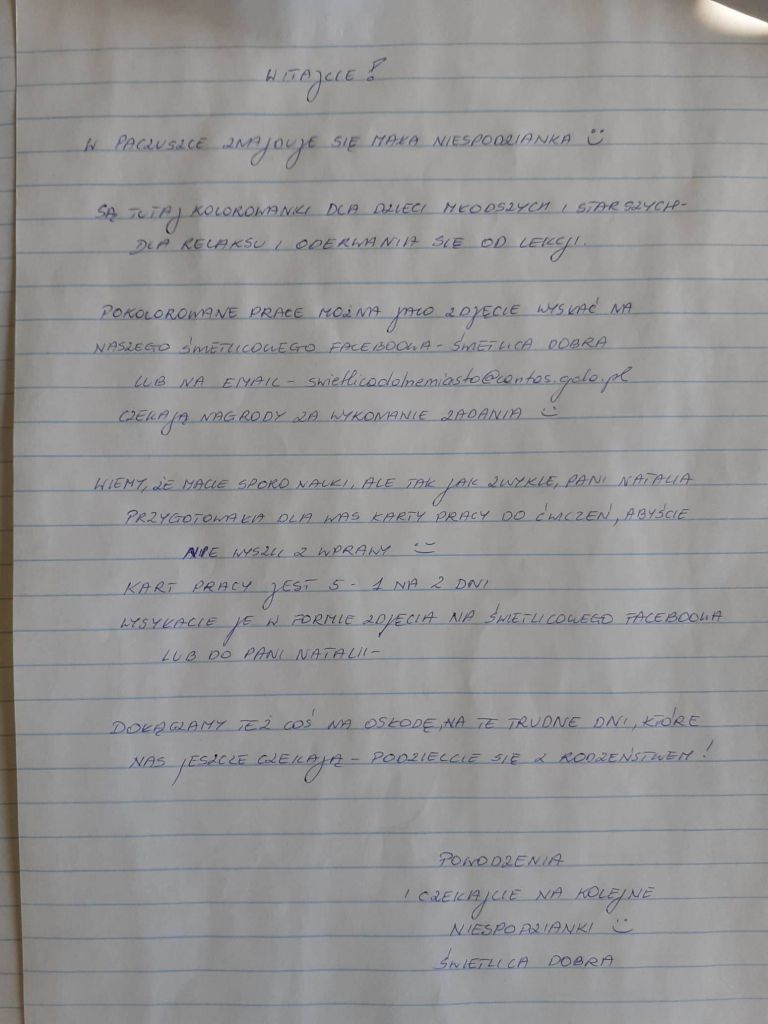 WITAJCIE!
W PACZUSZCE ZNAJDUJE SIĘ MAŁA NIESPODZIANKA :)
SĄ TUTAJ KOLOROWANKI DLA DZIECI MŁODSZYCH I STARSZYCH-
DLA RELAKSU I ODERWANIA SIĘ OD LEKCJI.
POKOLOROWANE PRACE MOŻNA JAKO ZDJĘCIE WYSŁAĆ NA
NASZEGO ŚWIETLICOWEGO FACEBOOKA - ŚWIETLICA DOBRA
LUB NA EMAIL - swietlicadolnemiasto@caritas.gda.pl
CZEKAJĄ NAGRODY ZA WYKONANIE ZADANIA :)
WIEMY, ŻE MACIE SPORO NAUKI, ALE TAK JAK ZWYKLE, PANI NATALIA
PRZYGOTOWAŁA DLA WAS KARTY PRACY DO ĆWICZEŃ, ABYŚCIE
NIE WYSZLI Z WPRAWY :)
KART PRACY JEST 5 - 1 NA 2 DNI
WYSYŁACIE JE W FORMIE ZDJĘCIA NA ŚWIETLICOWEGO FACEBOOKA
LUB DO PANI NATALII-
DOŁĄCZAMY TEŻ COŚ NA OSŁODĘ, NA TE TRUDNE DNI, KTÓRE
NAS JESZCZE CZEKAJĄ - PODZIELCIE SIĘ Z RODZEŃSTWEM!
POWODZENIA
I CZEKAJCIE NA KOLEJNE
NIESPODZIANKI :)
ŚWIETLICA DOBRA